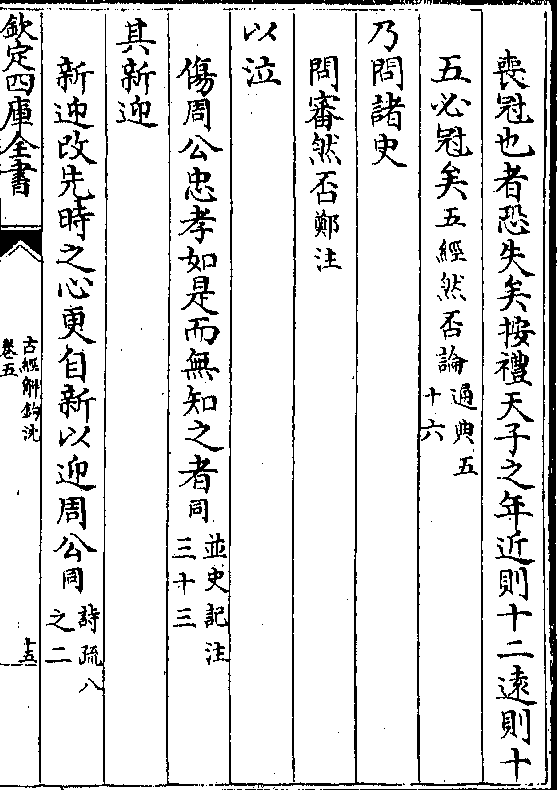 喪冠也者恐失矣按禮天子之年近則十二遠則十
五必冠矣五經然否論通典五十六
乃問諸史
問審然否鄭注
以泣
傷周公忠孝如是而無知之者同並史記注三十三
其新迎
新迎改先時之心更自新以迎周公同詩疏八之二
欽定四庫全書
古經解鉤沈
卷五
十五